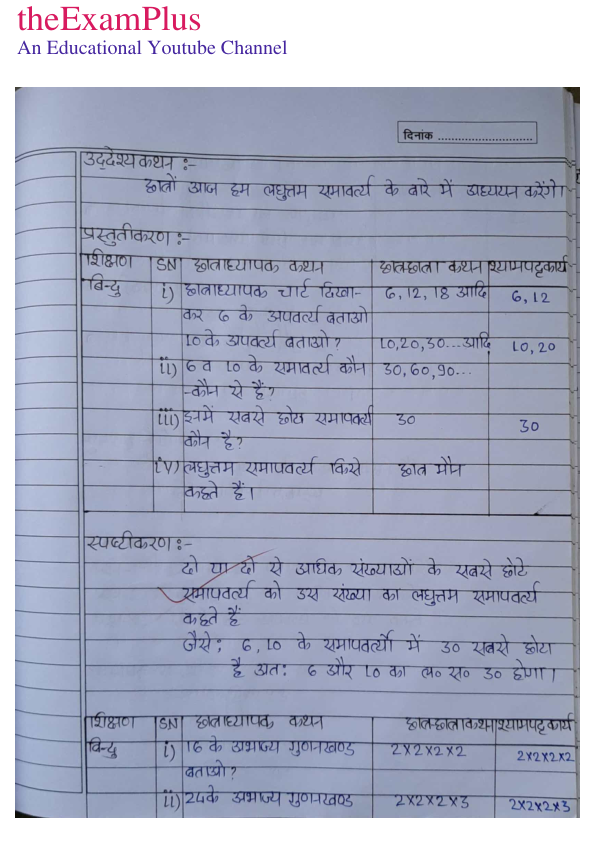 theExamPlus
An Educational Youtube Channel
दिनांक ............................
उद्देश्य कथन :-
छात्रों आज हम लघुत्तम समावर्त्य के बारे में अध्ययन करेंगे।
प्रस्तुतीकरण :-
शिक्षण SN छात्राध्यापक कथन छात्र-छात्रा कथन श्यामपट्टकार्य
बिन्दु i) छात्राध्यापक चार्ट दिखा- 6, 12, 18 आदि 6, 12
कर 6 के अपवर्त्य बताओ
10 के अपवर्त्य बताओ? 10,20,30...आदि 10, 20
ii) 6 व 10 के समावर्त्य कौन 30,60,90...
-कौन से हैं?
iii) इनमें सबसे छोटा समापवर्त्य 30 30
कौन है?
iv) लघुत्तम समापवर्त्य किसे छात्र मौन
कहते हैं।
स्पष्टीकरण :-
दो या दो से अधिक संख्याओं के सबसे छोटे
समापवर्त्य को उस संख्या का लघुत्तम समापवर्त्य
कहते हैं
जैसे : 6, 10 के समापवर्त्यों में 30 सबसे छोटा
है अत: 6 और 10 का ल० स० 30 होगा।
शिक्षण SN छात्राध्यापक कथन छात्र-छात्रा कथन श्यामपट्टकार्य
बिन्दु i) 16 के अभाज्य गुणनखण्ड 2×2×2×2 2×2×2×2
बताओ?
ii) 24 के अभाज्य गुणनखण्ड 2×2×2×3 2×2×2×3